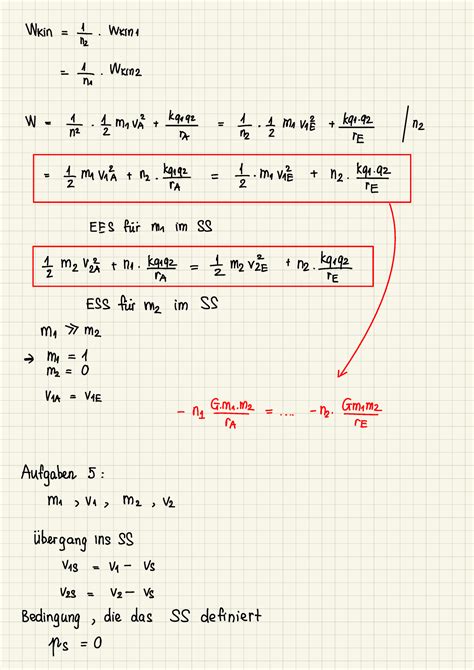 Wkin = 1/n₂ · Wkin1
= 1/n₁ · Wkin2
W = 1/n² · 1/2 m₁v_A² + kq₁q₂/r_A = 1/n₂ · 1/2 m₁v_1E² + kq₁·q₂/r_E /n₂
= 1/2 m₁v_1A² + n₂ · kq₁q₂/r_A = 1/2 · m₁v_1E² + n₂ · kq₁·q₂/r_E
EES für m₁ im SS
1/2 m₂v_2A² + n₁ · kq₁q₂/r_A = 1/2 m₂v_2E² + n₂ · kq₁q₂/r_E
ESS für m₂ im SS
m₁ ≫ m₂
→ m₁ = 1
m₂ = 0
v_1A = v_1E
- n₁ G·m₁·m₂/r_A = .... -n₂ · Gm₁m₂/r_E
Aufgaben 5:
m₁ , v₁ , m₂ , v₂
Übergang ins SS
v_1S = v₁ - v_S
v_2S = v₂ - v_S
Bedingung , die das SS definiert
p_S = 0